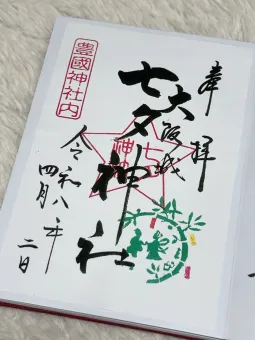 奉拝
大阪城
七夕神社
豊國神社内
令和八年
四月二日